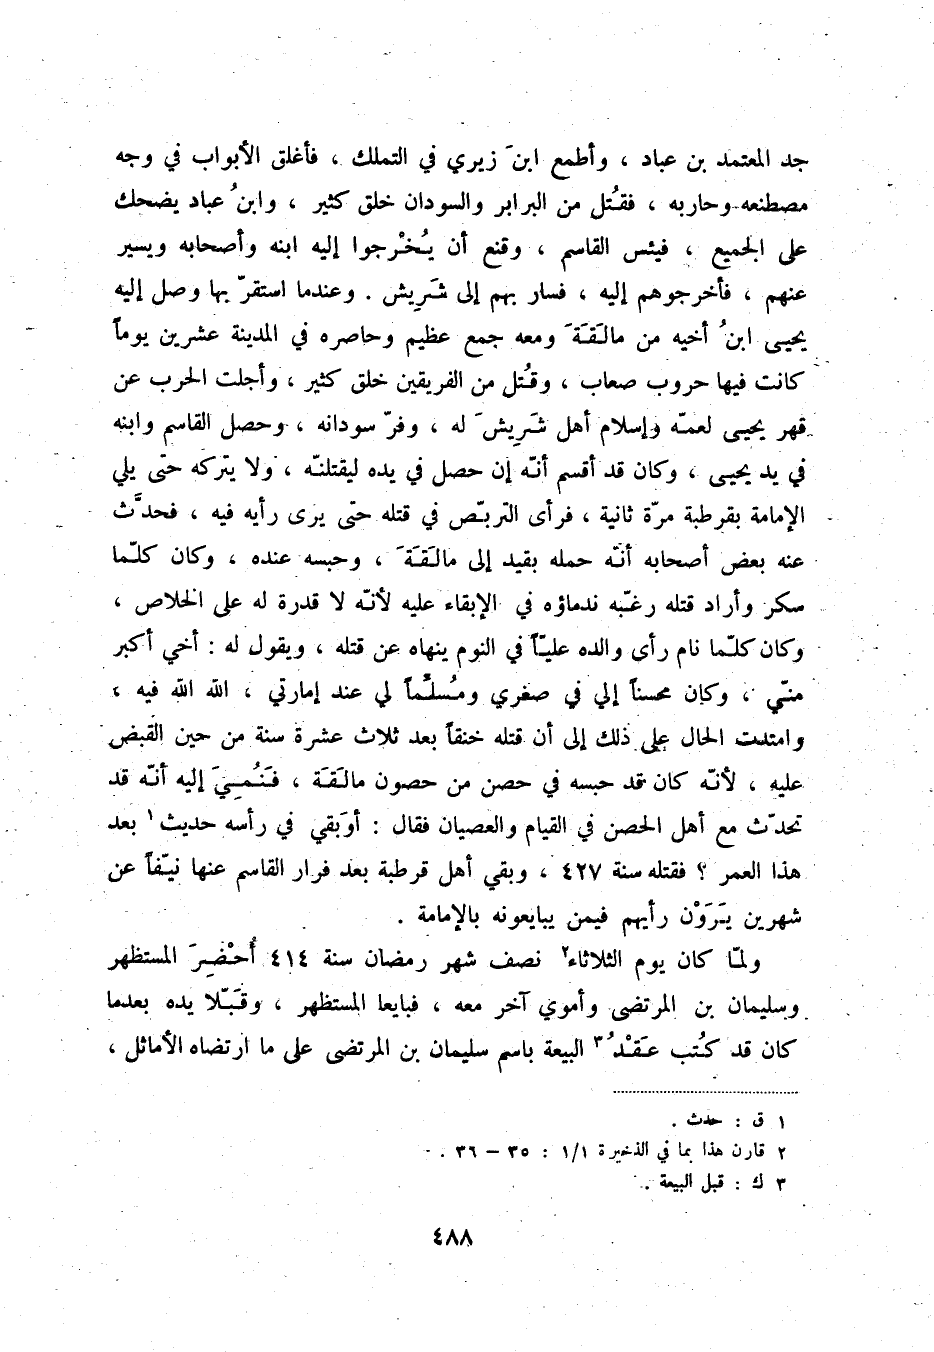 جد المعتمد بن عباد ، وأطمع ابنَ زيري في التملك ، فأغلق الأبواب في وجه
مصطنعه وحاربه ، فقُتل من البرابر والسودان خلق كثير ، وابنُ عباد يضحك
على الجميع ، فيئس القاسم ، وقنع أن يُخْرجوا إليه ابنه وأصحابه ويسير
عنهم ، فأخرجوهم إليه ، فسار بهم إلى شَرِيش . وعندما استقرّ بها وصل إليه
يحيى ابنُ أخيه من مالَقَةَ ومعه جمع عظيم وحاصره في المدينة عشرين يوماً
كانت فيها حروب صعاب ، وقُتل من الفريقين خلق كثير ، وأجلت الحرب عن
قهر يحيى لعمّه وإسلام أهل شَرِيشَ له ، وفرّ سودانه ، وحصل القاسم وابنه
في يد يحيى ، وكان قد أقسم أنّه إن حصل في يده ليقتلنّه ، ولا يتركه حتّى يلي
الإمامة بقرطبة مرّة ثانية ، فرأى التربّص في قتله حتّى يرى رأيه فيه ، فحدَّث
عنه بعض أصحابه أنّه حمله بقيد إلى مالَقَةَ ، وحبسه عنده ، وكان كلّما
سكر وأراد قتله رغّبه ندماؤه في الإبقاء عليه لأنّه لا قدرة له على الخلاص ،
وكان كلّما نام رأى والده عليّاً في النوم ينهاه عن قتله ، ويقول له : أخي أكبر
منّي ، وكان محسناً إلي في صغري ومُسلّماً لي عند إمارتي ، الله الله فيه ،
وامتدت الحال على ذلك إلى أن قتله خنقاً بعد ثلاث عشرة سنة من حين القبض
عليه ، لأنّه كان قد حبسه في حصن من حصون مالَقَة ، فَنُمِيَ إليه أنّه قد
تحدّث مع أهل الحصن في القيام والعصيان فقال : أوَبقي في رأسه حديث١ بعد
هذا العمر ؟ فقتله سنة ٤٢٧ ، وبقي أهل قرطبة بعد فرار القاسم عنها نيّفاً عن
شهرين يَرَوْن رأيهم فيمن يبايعونه بالإمامة .
ولمّا كان يوم الثلاثاء٢ نصف شهر رمضان سنة ٤١٤ أُحْضِرَ المستظهر
وسليمان بن المرتضى وأموي آخر معه ، فبايعا المستظهر ، وقَبّلا يده بعدما
كان قد كُتب عَقْدُ٣ البيعة باسم سليمان بن المرتضى على ما ارتضاه الأماثل ،
١ ق : حدث .
٢ قارن هذا بما في الذخيرة ١/١ : ٣٥ – ٣٦ .
٣ ك : قبل البيعة .
٤٨٨